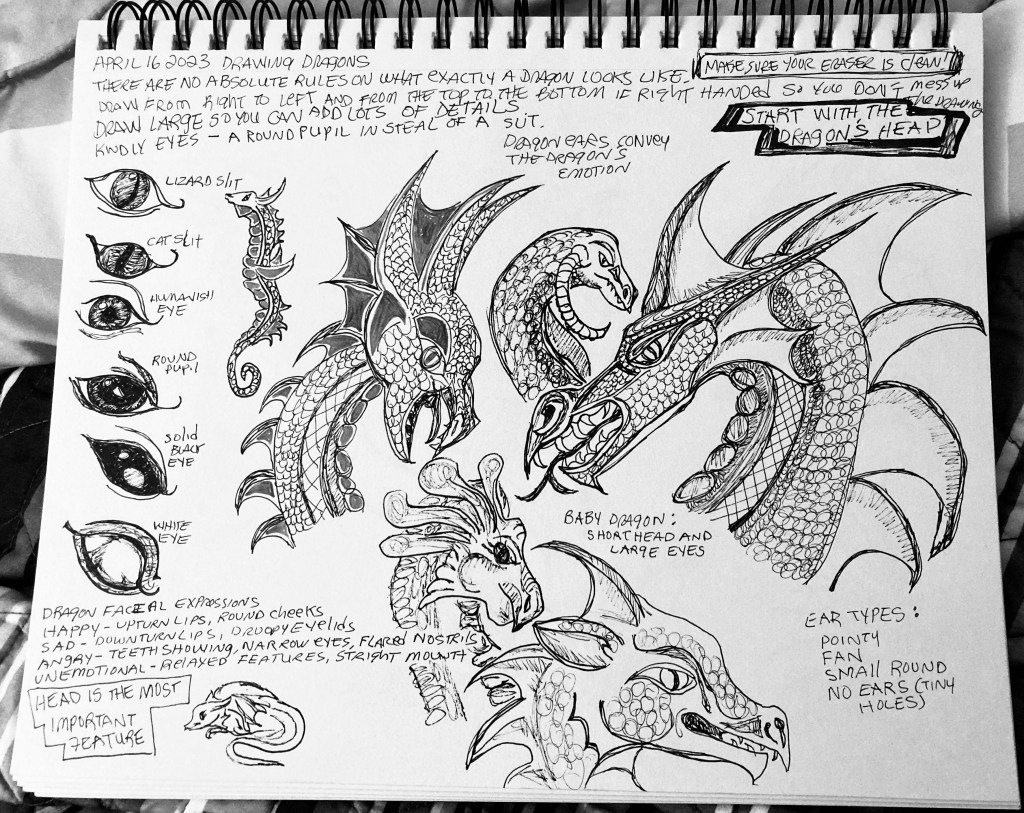 APRIL 16 2023 DRAWING DRAGONS
THERE ARE NO ABSOLUTE RULES ON WHAT EXACTLY A DRAGON LOOKS LIKE.
DRAW FROM RIGHT TO LEFT AND FROM THE TOP TO THE BOTTOM IF RIGHT HANDED SO YOU DON'T MESS UP
THE DRAWING
DRAW LARGE SO YOU CAN ADD LOTS OF DETAILS
KINDLY EYES - A ROUND PUPIL IN STEAL OF A SLIT.
MAKE SURE YOUR ERASER IS CLEAN!
START WITH THE
DRAGON'S HEAD
DRAGON EARS CONVEY
THE DRAGON'S
EMOTION
LIZARD SLIT
CAT SLIT
HUMANISH
EYE
ROUND
PUPIL
SOLID
BLACK
EYE
WHITE
EYE
BABY DRAGON:
SHORT HEAD AND
LARGE EYES
DRAGON FACIAL EXPRESSIONS
HAPPY - UPTURN LIPS, ROUND CHEEKS
SAD - DOWNTURN LIPS, DROOPY EYELIDS
ANGRY - TEETH SHOWING, NARROW EYES, FLARED NOSTRILS
UNEMOTIONAL - RELAXED FEATURES, STRIGHT MOUNTH
HEAD IS THE MOST
IMPORTANT
FEATURE
EAR TYPES:
POINTY
FAN
SMALL ROUND
NO EARS (TINY
HOLES)